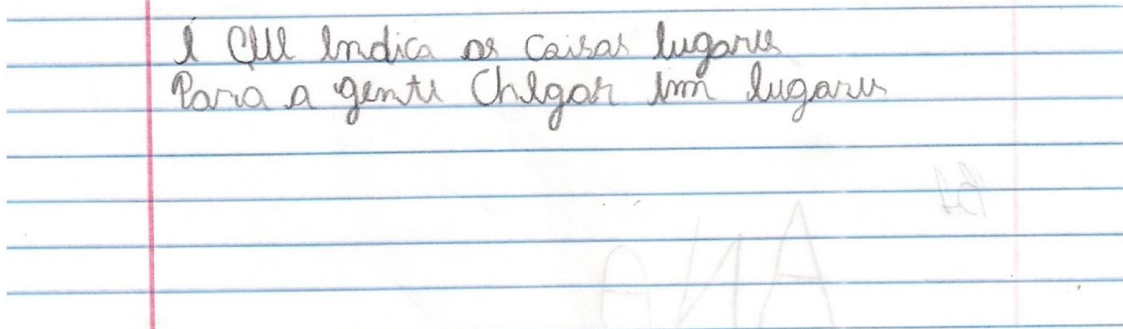 É que indica as coisas lugares
Para a gente chegar em lugares